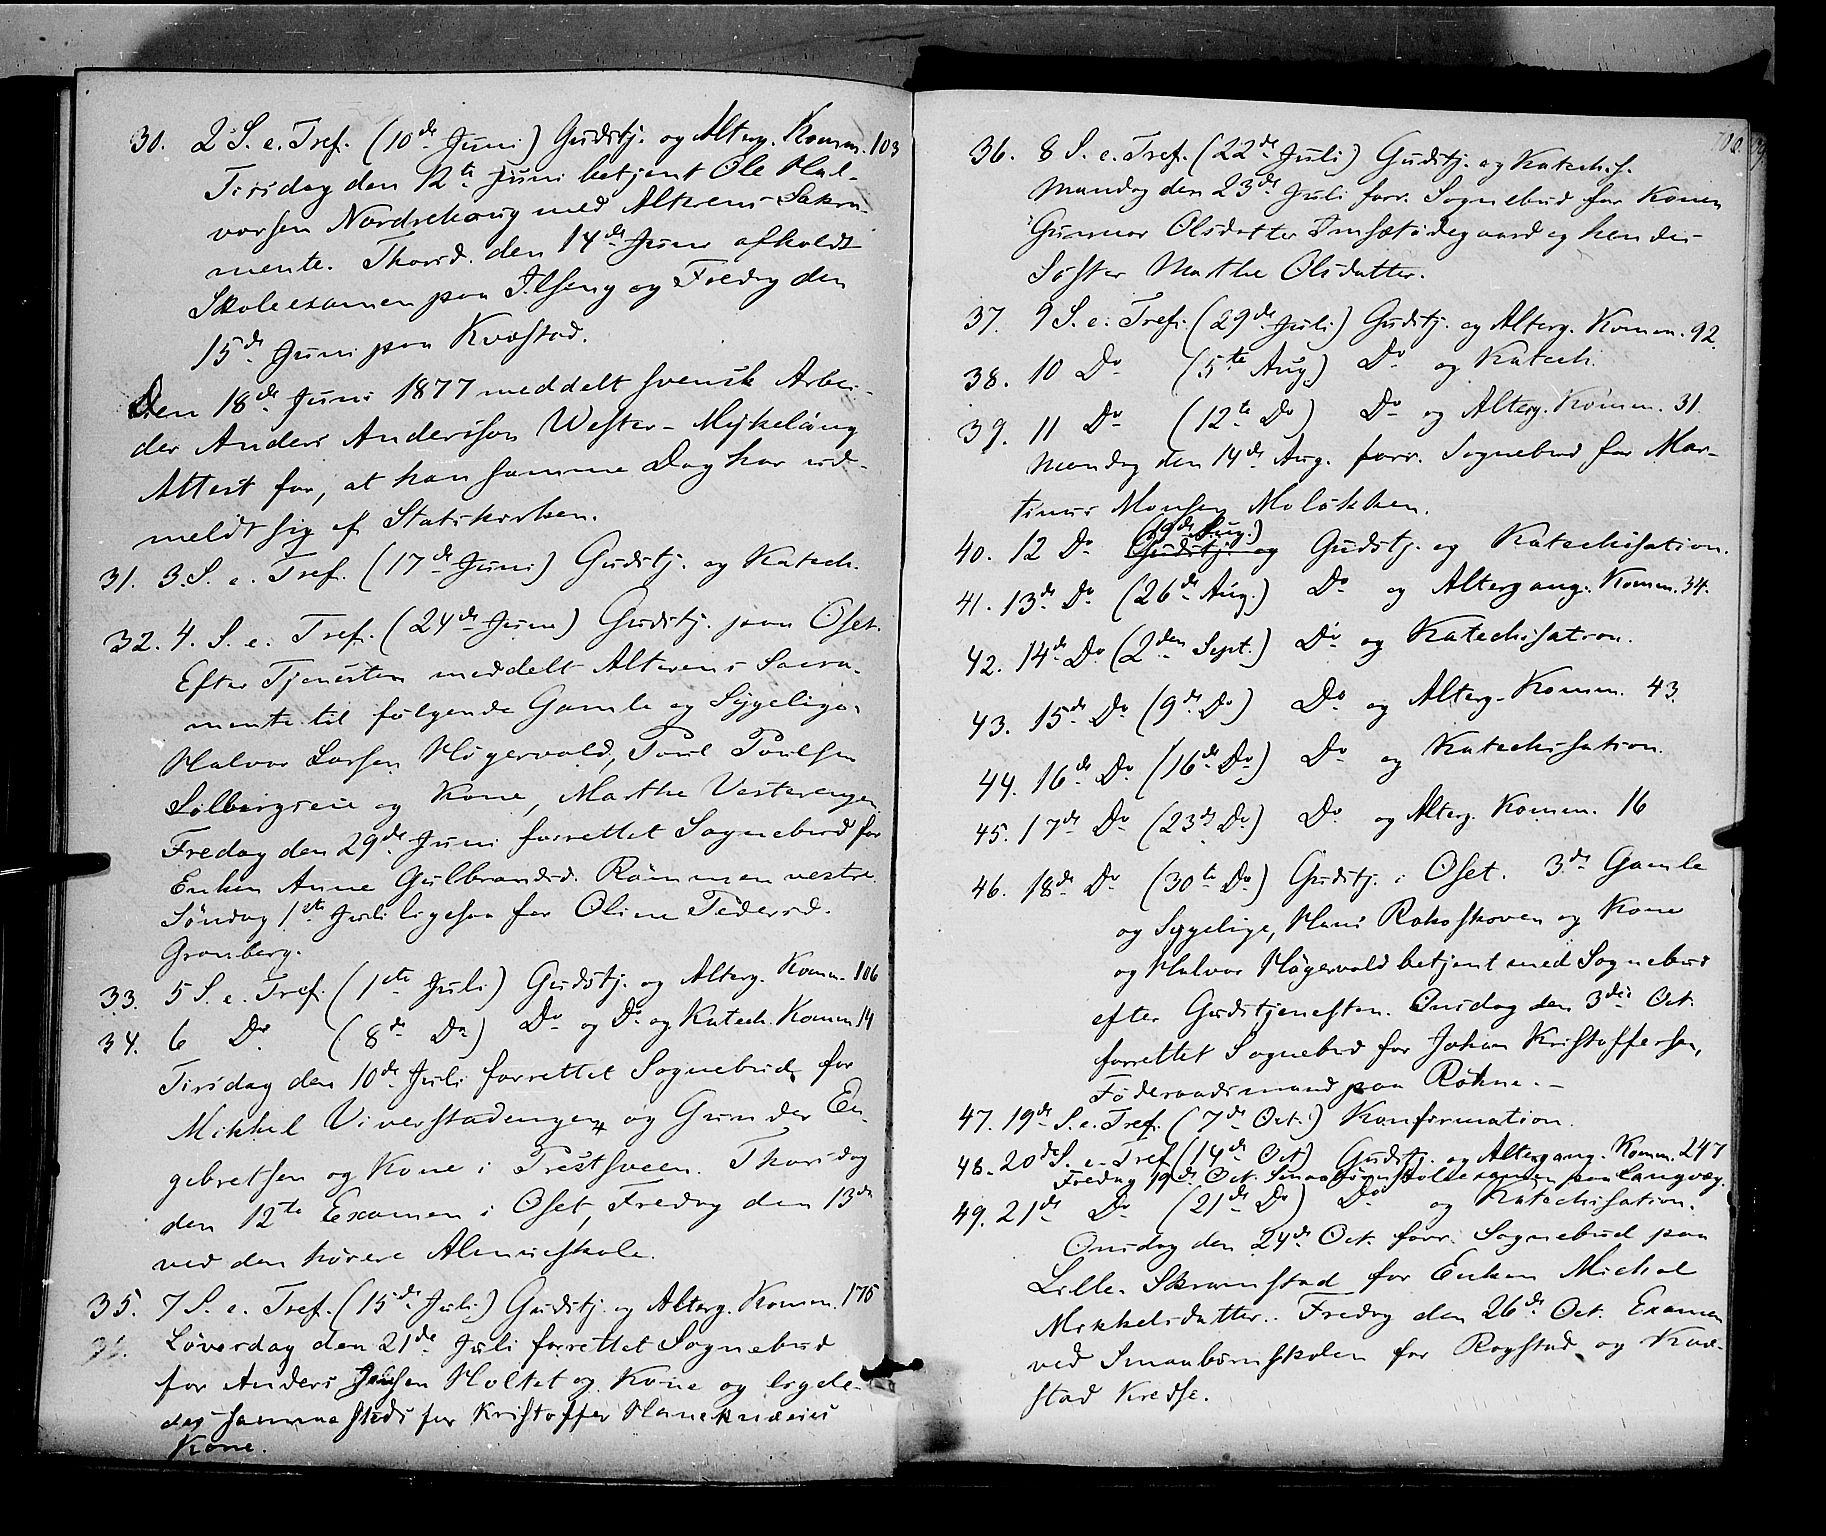 30. 2 S. e. Tref. (10de Juni) Gudstj. og Alterg. Komm. 103
Tirsdag den 12te Juni betjent Ole Hal-
vorsen Nordrehaug med Alterens Sakra-
mente. Thorsd. den 14de Juni afholdt
Skoleexamen paa Ilseng og Fredag den
15de Juni paa Kvæstad.
Den 18de Juni 1877 meddelt svensk Arbei-
der Anders Andersson Wester-Mykeläng
Attest for, at han samme Dag har ud-
meldt sig af Statskirken.
31. 3. S. e. Tref. (17de Juni) Gudstj. og Katech.
32. 4. S. e. Tref. (24de Juni) Gudstj. paa Oset.
Efter Tjenesten meddelt Alterens Sacra-
mente til følgende Gamle og Sygelige.
Halvor Larsen Høgervold, Poul Poulsen
Solbergseie og Kone, Marthe Vesterengen
Fredag den 29de Juni forrettet Sognebud for
Enken Anne Gulbrandsd. Rømmen vestre.
Søndag 1ste Juli ligesaa for Oline Pedersd.
Grønberg.
33. 5 S. e. Tref. (1ste Juli) Gudstj. og Alterg. Komm. 106
34. 6 Do (8de Do) Do og Do og Katech. Komm 14
Tirsdag den 10de Juli forrettet Sognebud for
Mikkel Viverstadengen og Gunder En-
gebretsen og Kone i Prestsveen. Thorsdag
den 12te Examen i Oset, Fredag den 13de
ved den høiere Almueskole.
35. 7 S. e. Tref. (15de Juli) Gudstj. og Alterg. Komm. 175
36. Løverdag den 21de Juli forrettet Sognebud
for Anders Jensen Holtet og Kone og ligele-
des sammesteds for Kristoffer Hanekneeies
Kone.
100.
36. 8 S. e. Tref. (22de Juli) Gudstj. og Katechis.
Mandag den 23de Juli forr. Sognebud for Konen
Gunnor Olsdatter Imsetødegaard og hendes
Søster Marthe Olsdatter.
37. 9 S. e. Tref. (29de Juli) Gudstj. og Alterg. Komm. 92.
38. 10 Do (5te Aug) Do og Katech.
39. 11 Do (12te Do) Do og Alterg. Komm. 31.
Mandag den 14de Aug. forr. Sognebud for Mar-
tinus Monsen Moløkken.
(19de Aug.)
40. 12 Do Gudstj. og Gudstj. og Katechisation.
41. 13de Do (26de Aug.) Do og Altergang. Komm. 34.
42. 14de Do (2den Sept.) Do og Katechisation.
43. 15de Do (9de Do) Do og Alterg. Komm. 43.
44. 16de Do (16de Do) Do og Katechisation.
45. 17de Do (23de Do) Do og Alterg. Komm. 16
46. 18de Do (30te Do) Gudstj. i Oset. 3de Gamle
og Sygelige, Hans Rokoskoven og Kone
og Halvor Høgervold betjent med Sognebud
efter Gudstjenesten. Onsdag den 3die Oct.
forrettet Sognebud for Johan Kristoffersen,
Føderaadsmand paa Røhne.
47. 19de S. e. Tref. (7de Oct.) Konfirmation.
48. 20de S. e. Tref (14de Oct) Gudstj. og Altergang. Komm. 247
Fredag 19de Oct. Smaabørnskoleexamen paa Langvæg.
49. 21de Do (21de Do) Do og Katechisation.
Onsdag den 24de Oct. forr. Sognebud paa
Lille-Skramstad for Enken Michal
Mikkelsdatter. Fredag den 26de Oct. Examen
ved Smaabørnskolen for Rogstad og Kvæ-
stad Kredse.